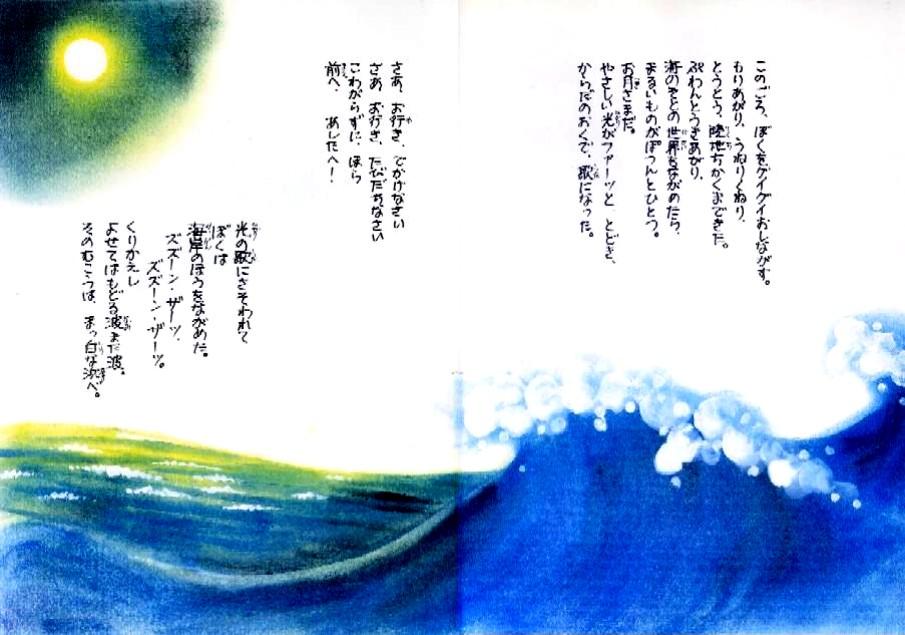 このごろ、ぼくをグイグイおしながす。
もりあがり、うねりくねり、
とうとう、陸地ちかくまできた。
ぷわんとうきあがり、
海のそとの世界をながめたら、
まるいものがぽつんとひとつ。
お月さまだ。
やさしい光がファーッと とどき、
からだのおくで、歌になった。
さあ、お行き、でかけなさい
さあ、お行き、たびだちなさい
こわがらずに、ほら
前へ、 あしたへ！
光の歌にさそわれて
ぼくは
海岸のほうをながめた。
ズズーン・ザーッ、
ズズーン・ザーッ。
くりかえし
よせてはもどる波また波。
そのむこうは、まっ白な